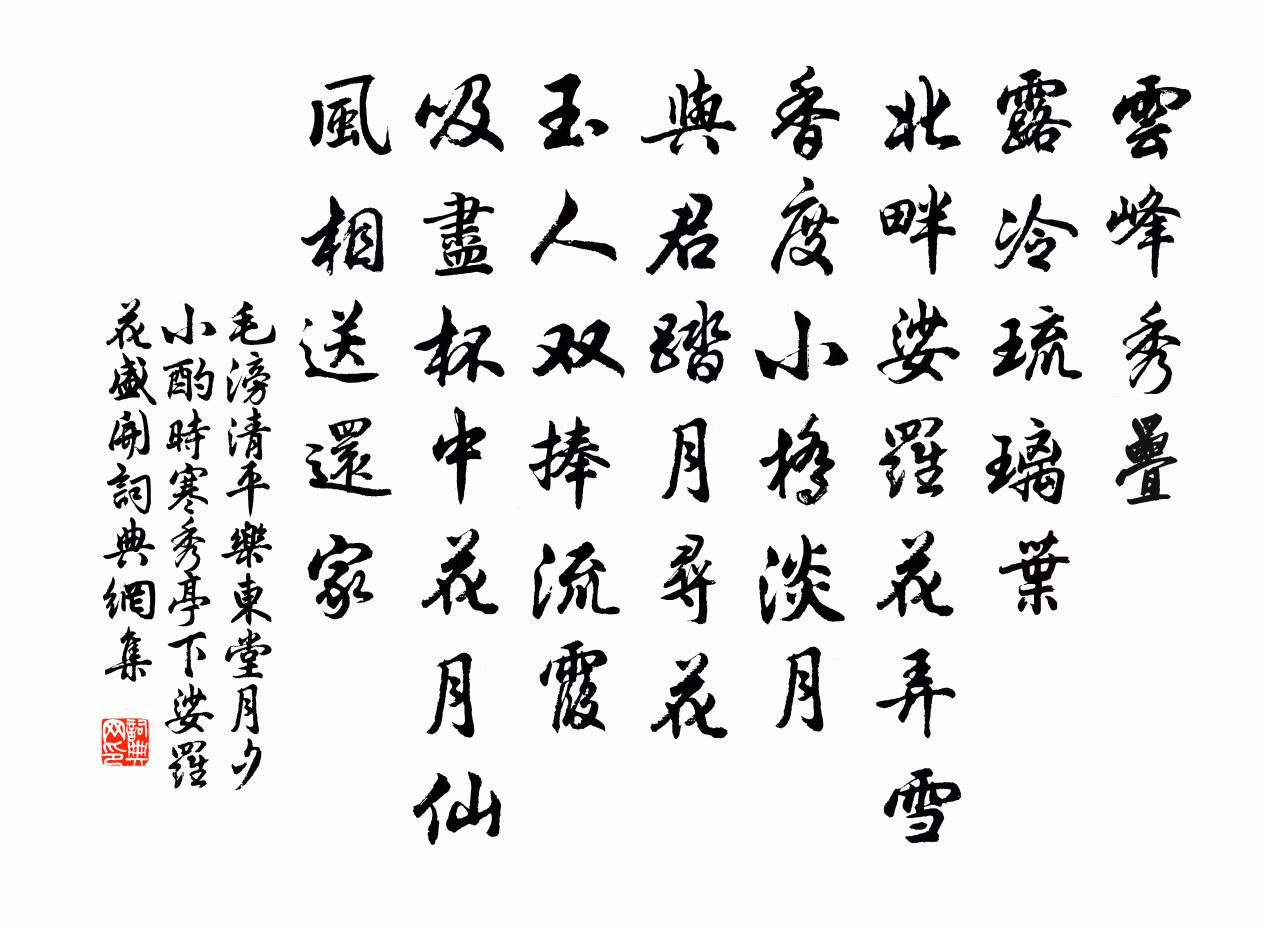 雲峰秀疊
露冷琉璃葉
北畔娑羅花弄雪
香度小橋淡月
與君踏月尋花
玉人双捧流霞
吸盡杯中花月仙
風相送還家
毛滂清平樂東堂月夕
小酌時寒秀亭下娑羅
花盛開詞典網集
詞典
网印